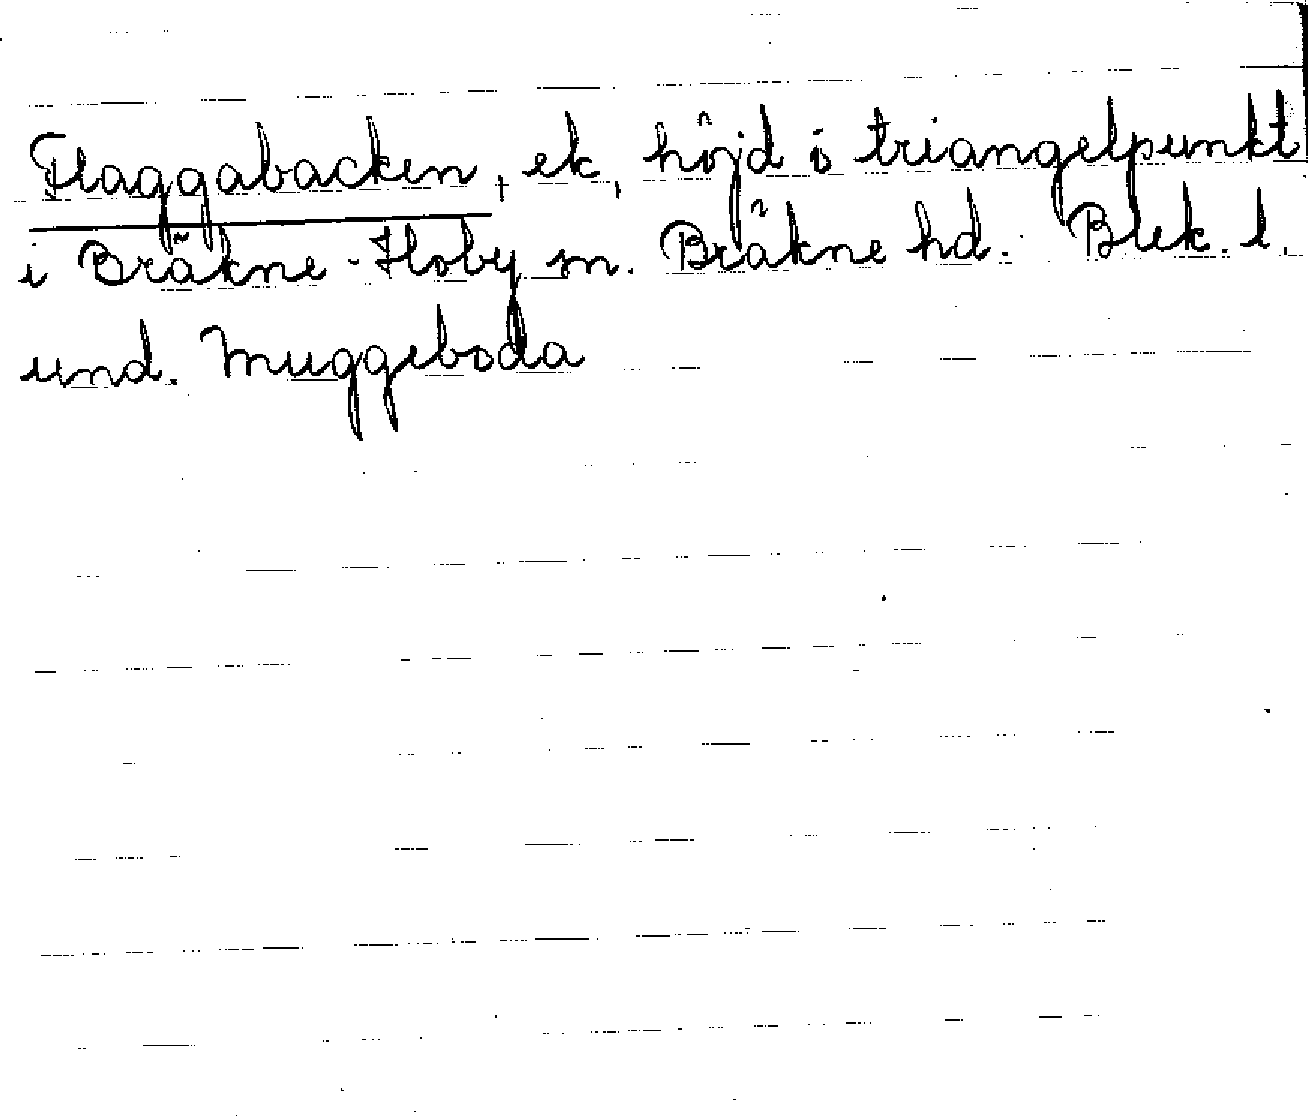 Flaggabacken, ek, höjd o triangelpunkt
i Bräkne-Hoby sn. Bräkne hd. Blek. l.
und. Muggeboda